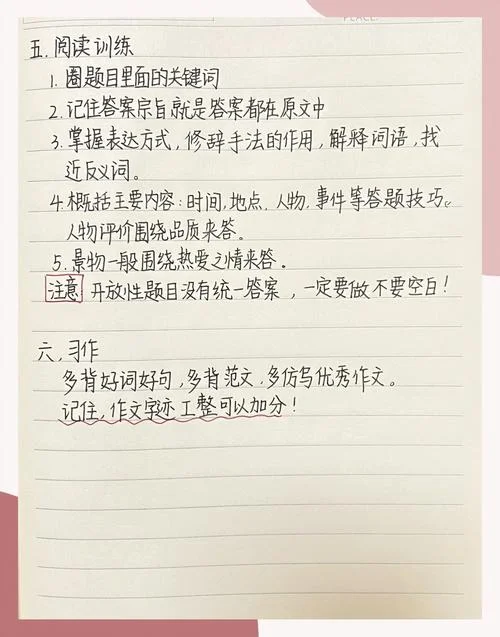 PLACE:
五.阅读训练
1.圈题目里面的关键词
2.记住答案宗旨就是答案都在原文中
3.掌握表达方式,修辞手法的作用,解释词语,找
近反义词。
4.概括主要内容:时间,地点.人物.事件等答题技巧。
人物评价围绕品质来答。
5.景物一般围绕热爱之情来答。
注意 开放性题目没有统一答案,一定要做不要空白!
六.习作
多背好词好句,多背范文.多仿写优秀作文。
记住,作文字迹工整可以加分!